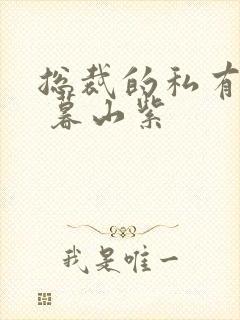 总裁的私有
暮山紫
我是唯一